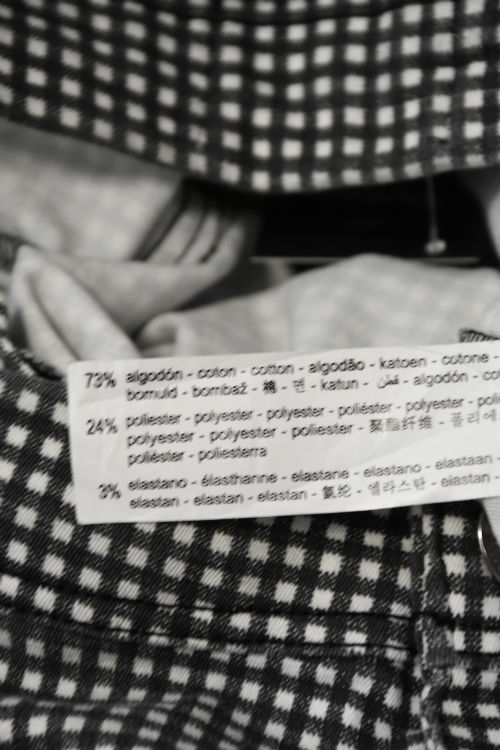 73% algodón - coton - cotton - algodão - katoen - cotone -
bomuld - bombaž - 棉 - 면 - katun - قطن - algodón - co
24% poliester - polyester - polyester - poliéster - polyester - poli
polyester - polyester - poliester - 聚酯纤维 - 폴리에
poliéster - poliesterra
3% elastano - élasthanne - elastane - elastano - elastaan
elastan - elastan - elastan - 氨纶 - 엘라스탄 - elastan -